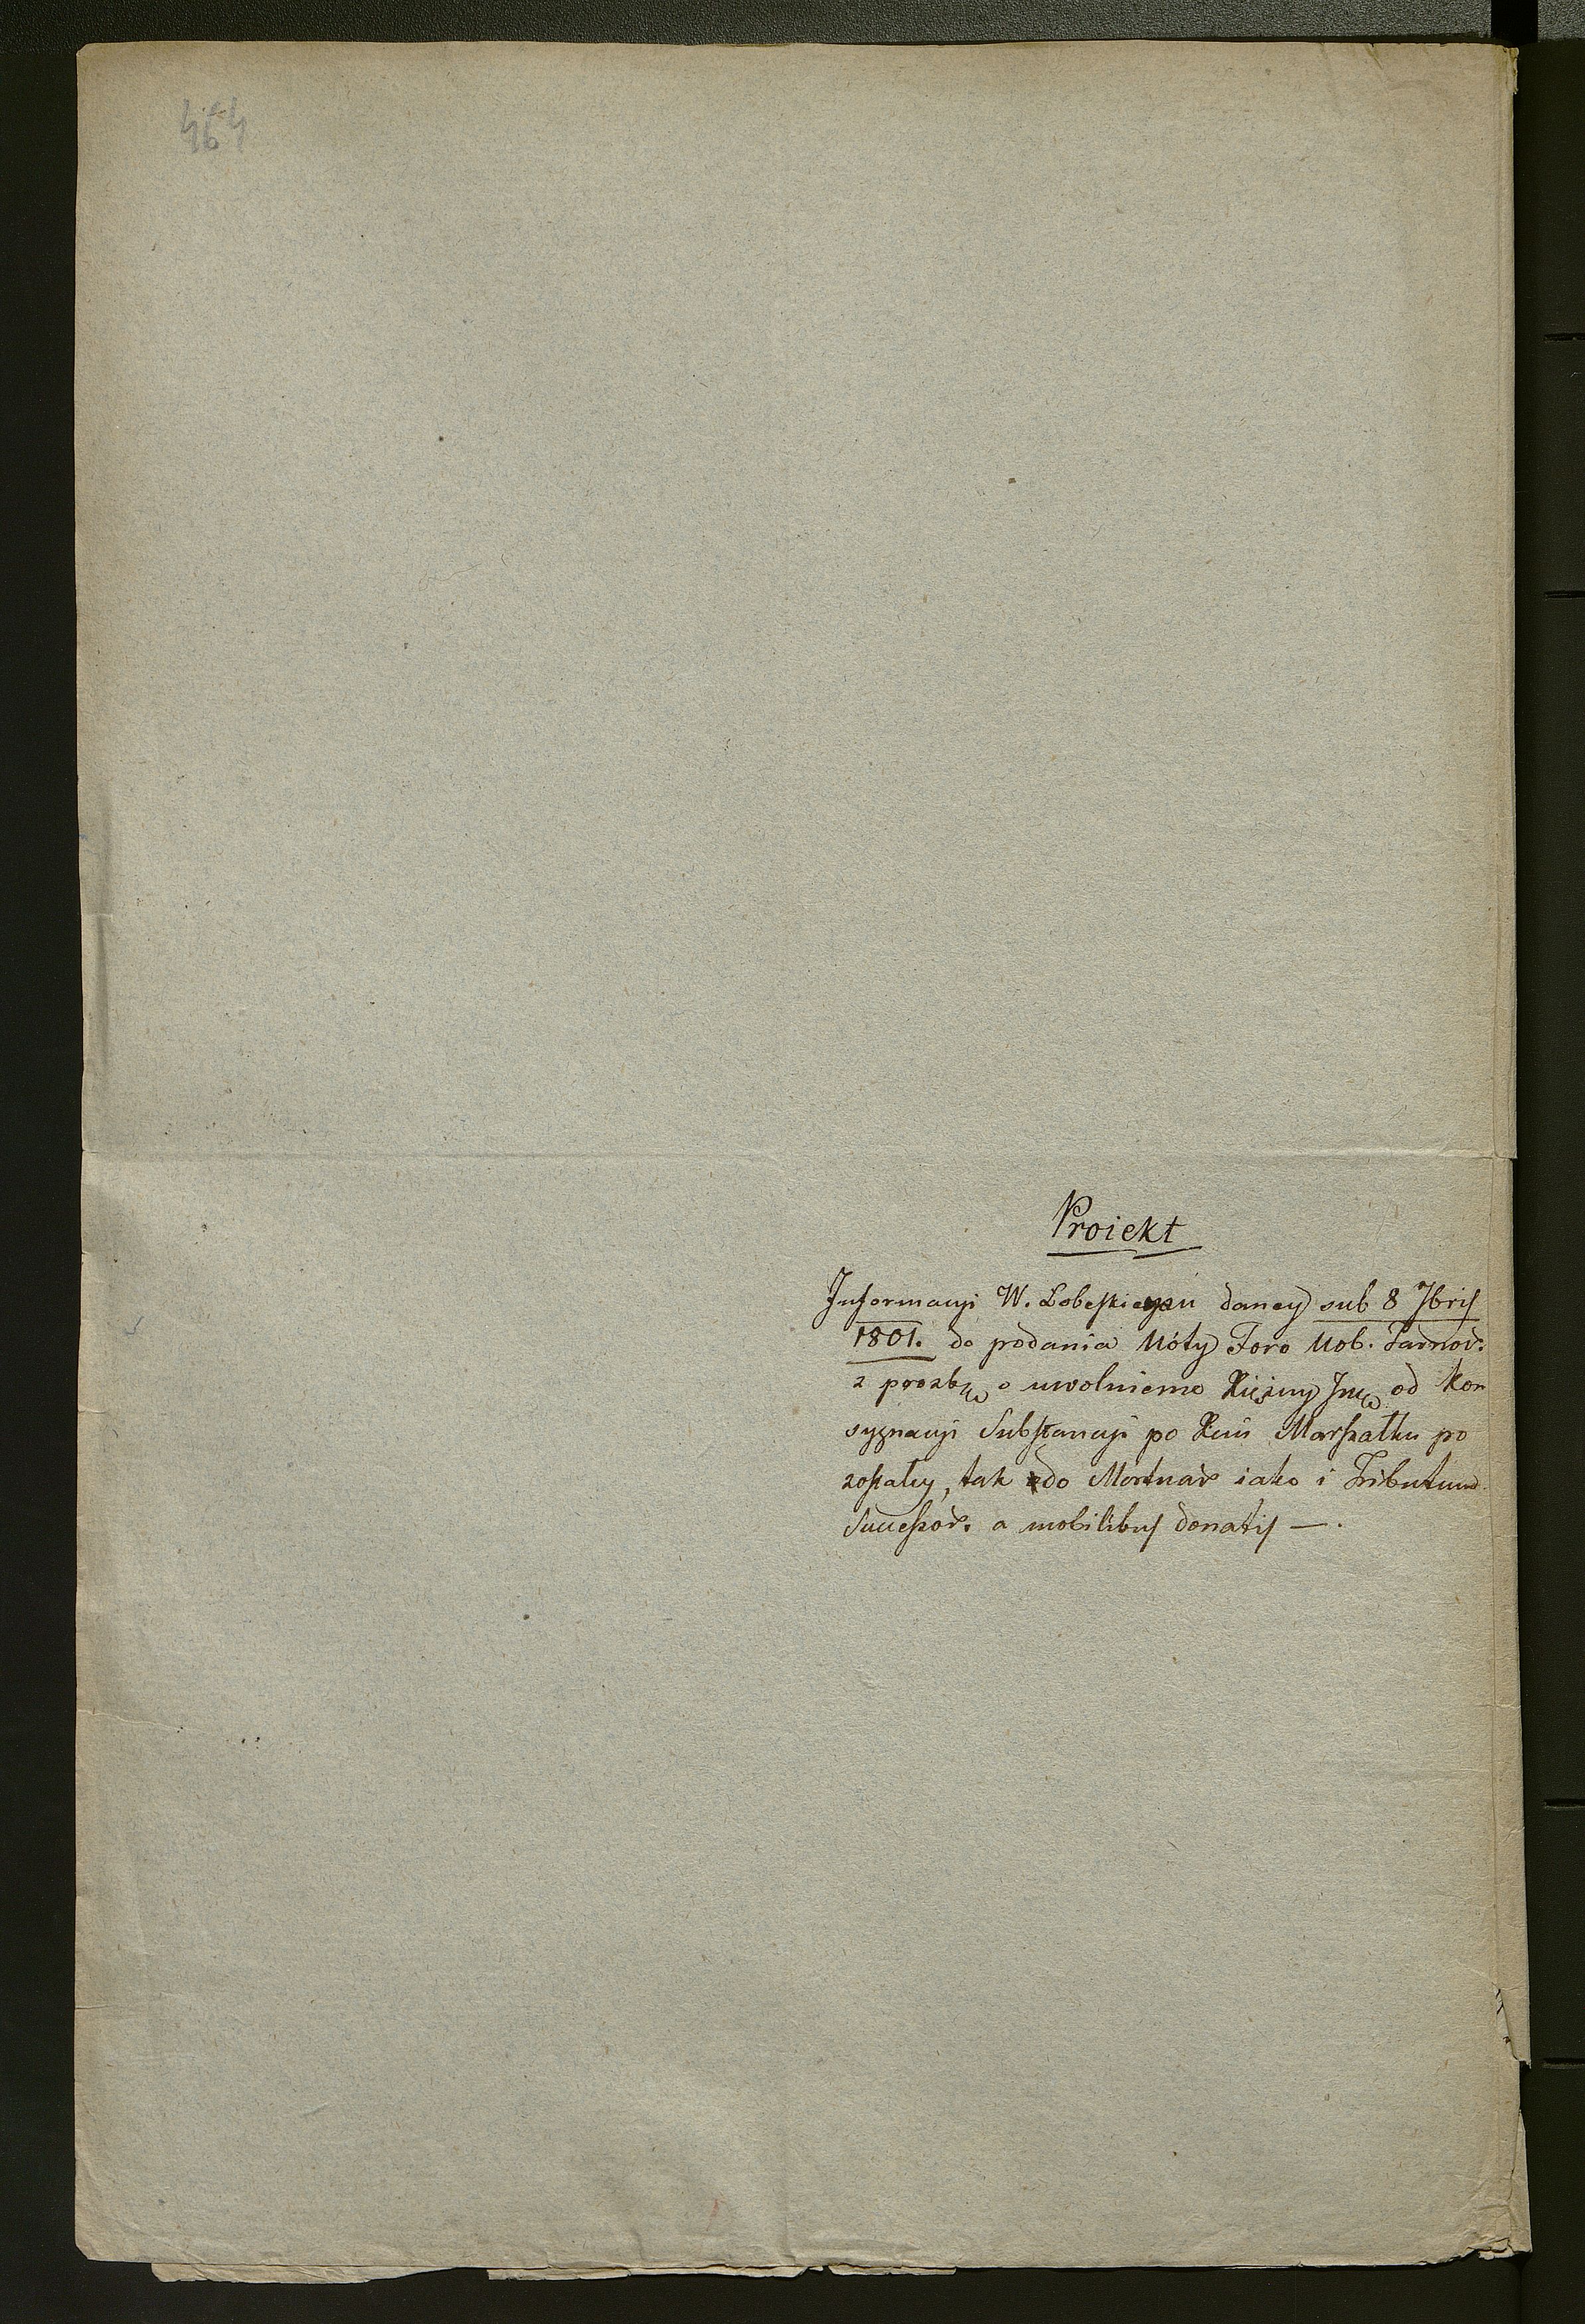 464
Proiekt
Informacyi W. Lobeskiemu daney sub 8 7bris
1801. do podania Nóty Foro Nob. Tarnov.
z prozbą o uwolnienie Xiężny Jmć od kon
sygnacyi Substancyi po Xciu Marszałku po
zostałey, tak do Mortuar iako i Tributum
Successor. a mobilibus donatis —.